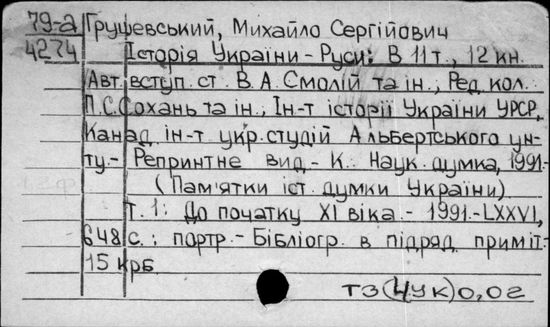 79-а Грушевський, Михайло Сергійович
4274 Історія України-Руси: В 11 т., 12 кн.
Авт. вступ. ст. В. А. Смолій та ін., Ред. кол.
П. С. Сохань та ін., Ін-т історії України УРСР,
Канад. ін-т укр. студій Альбертського ун-
ту.- Репринтне вид.- К. Наук. думка, 1991-
(Пам'ятки іст. думки України)
т. 1: До початку XI віка.- 1991.-LXXVI,
648 с.: портр.- Бібліогр. в підряд. приміт.
15 крб.
тз(4ук)0,02